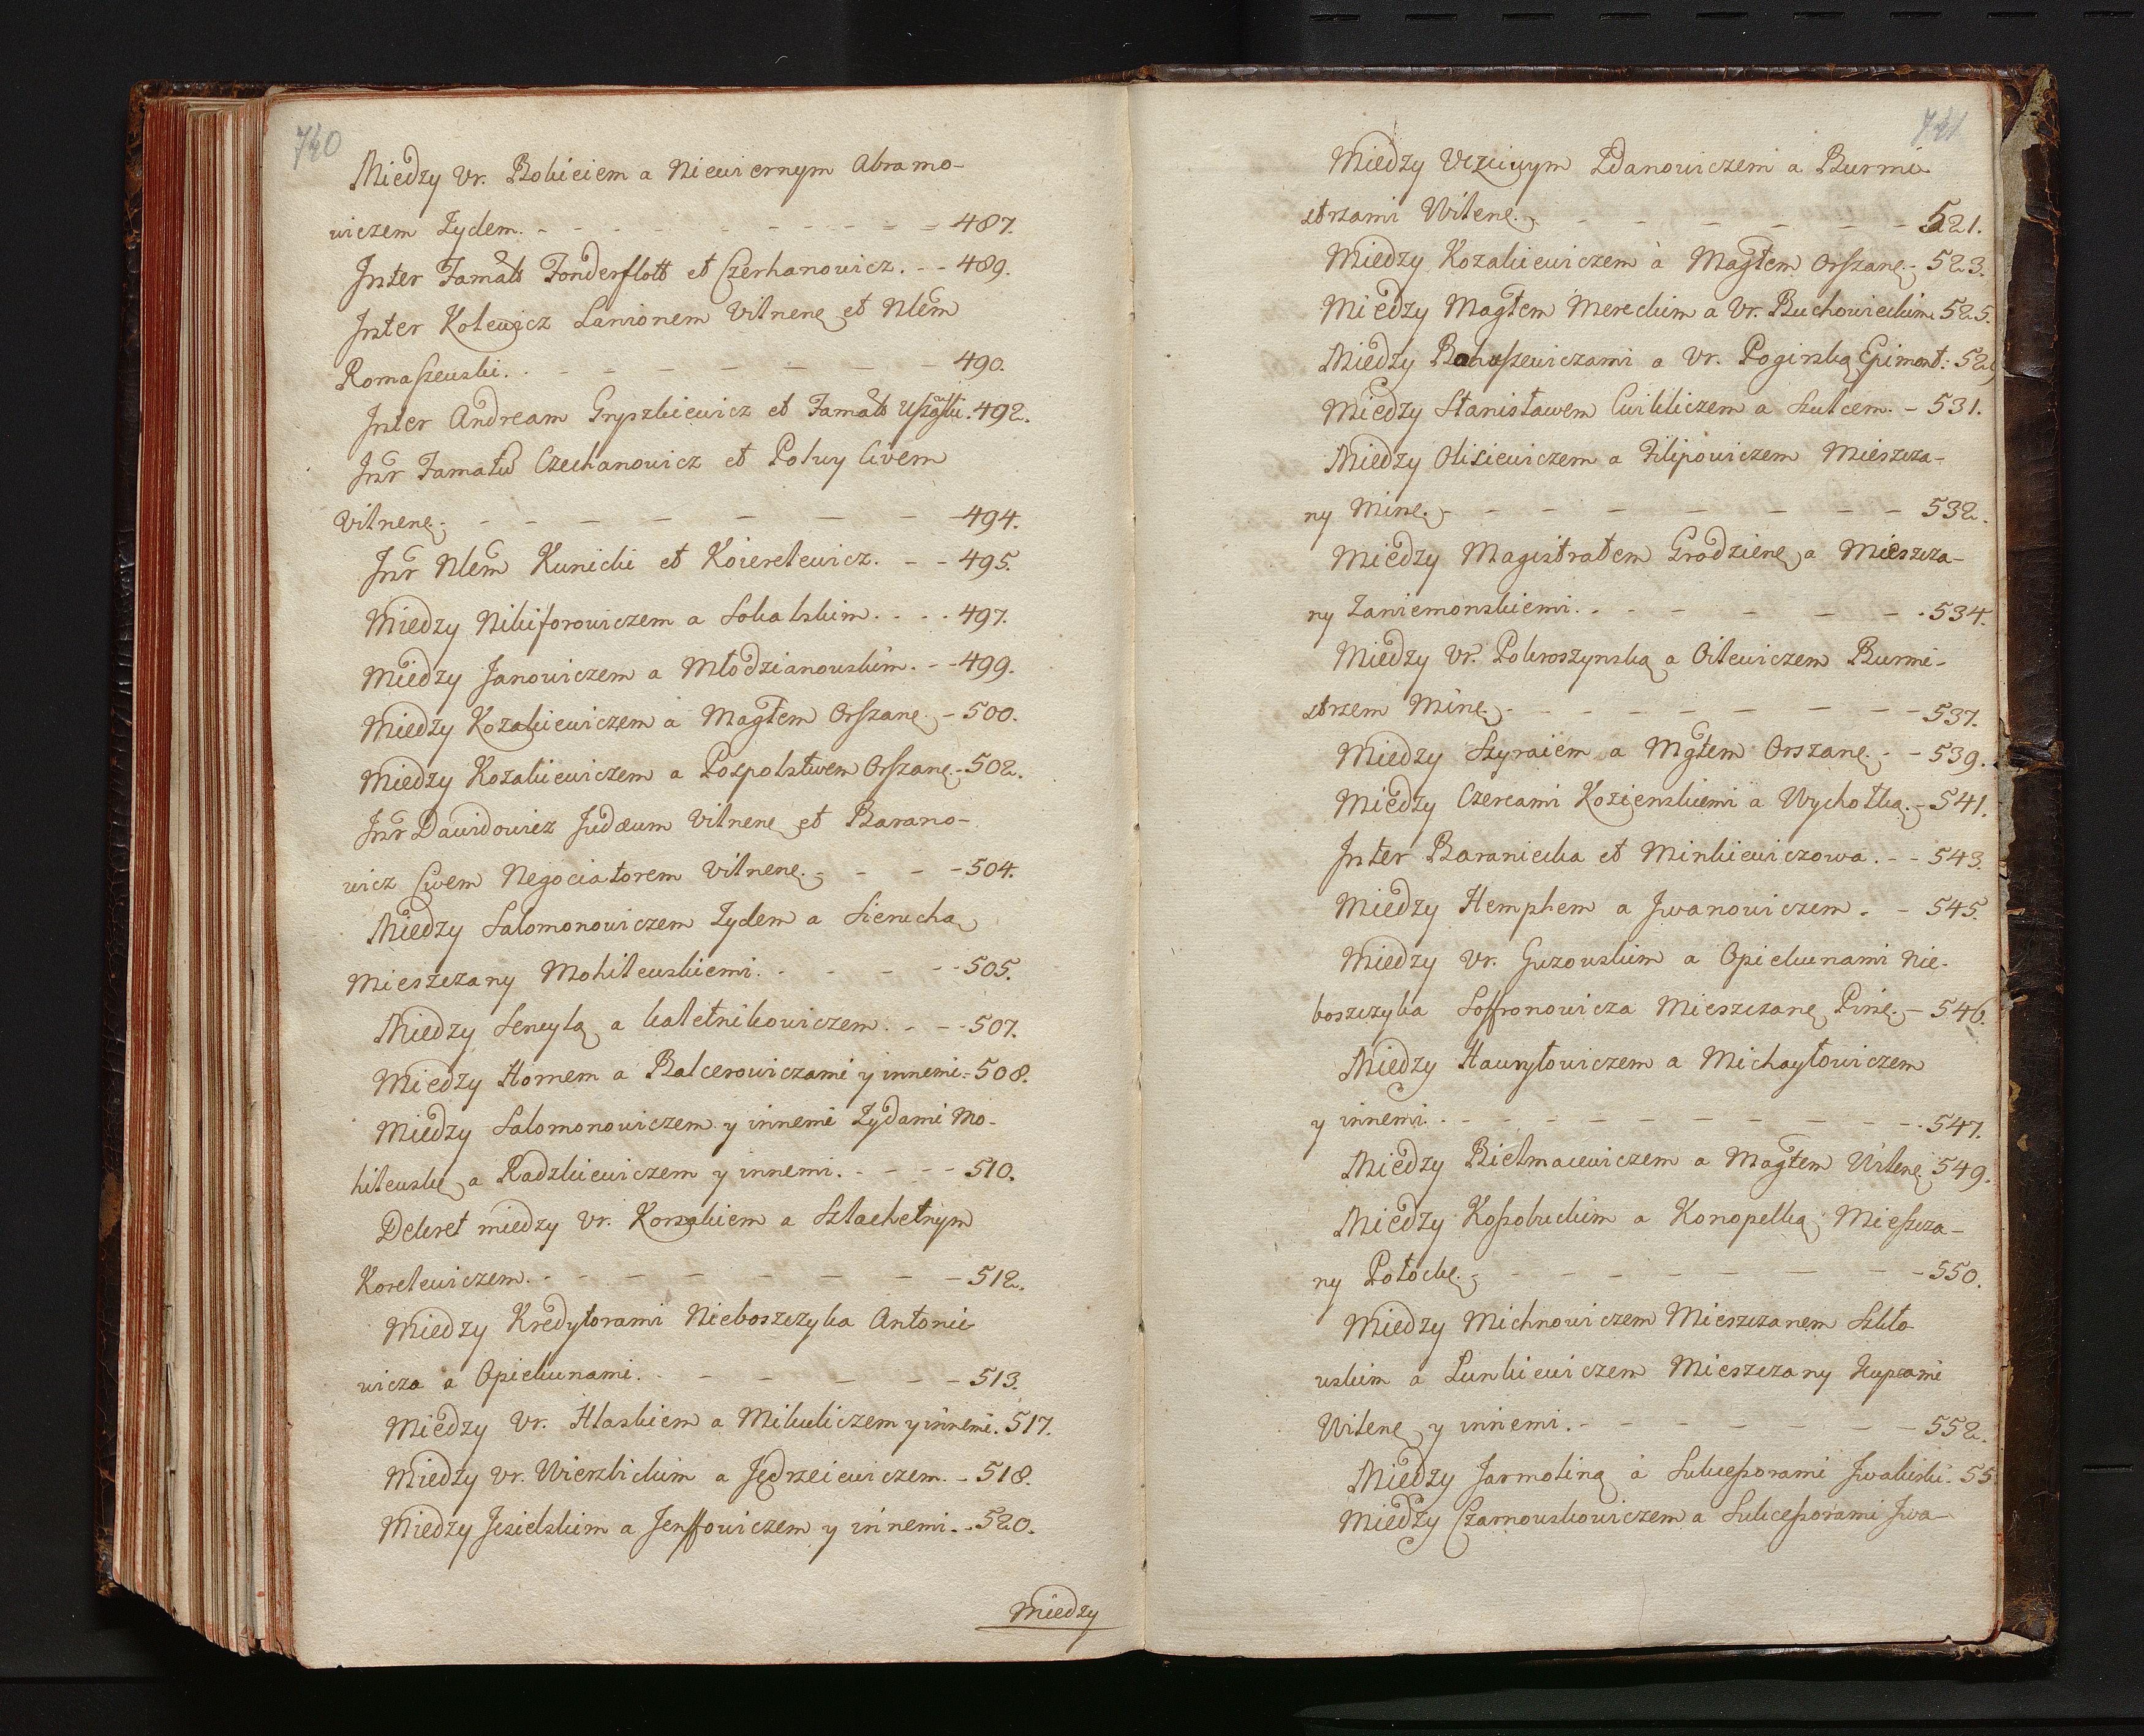 740
Miedzy Vr. Bokieiem a Niewiernym Abramo-
wiczem Zydem. - - - - - - - - - 487.
Inter Famatt Fonderflott et Czerhanowicz. - - 489.
Inter Kolewicz Lanionem Vilnene et Nlem
Romaſzewski. - - - - - - - 490.
Inter Andream Gryszkiewicz et Famatt 492.
Inr Famatu Czechanowicz et Poluy Civem
Vilnene. - - - - - - - - 494.
Inr Nlem Kunicki et Koierelewicz. - - 495.
Miedzy Nikiforowiczem a Sokalskim. - - - 497.
Miedzy Janowiczem a Młodzianowskim. - - 499.
Miedzy Kozakiewiczem a Magtem Orſzane. - 500.
Miedzy Kozakiewiczem a Pospolstwem Orſzane. - 502.
Inr Dawidowicz Judæum Vilnene et Barano-
wicz Civem Negociatorem Vilnene. - - - 504.
Miedzy Salomonowiczem Zydem a Sierucha
Mieszczany Mohilewskiemi. - - - - - 505.
Miedzy Seneyla a kaletnikowiczem. - - - 507.
Miedzy Hornem a Balcerowiczami y innemi. - 508.
Miedzy Salomonowiczem y innemi Zydami Mo-
hilewski a Radzkiewiczem y innemi. - - - - 510.
Dekret miedzy Vr. Korsakiem a Szlachetnym
Korelewiczem. - - - - - - - - 512.
Miedzy Kredytorami Nieboszczyka Antonie
wicza a Opiekunami. - - - - - - 513.
Miedzy Vr. Hlaskiem a Mikuliczem y innemi. 517.
Miedzy Vr. Wierzbickim a Jędrzeiewiczem. - 518.
Miedzy Jesielskim a Jenſſowiczem y innemi. - 520.
Miedzy
741
Miedzy Vczciwym Zdanowiczem a Burmi-
strzami Wilene. - - - - - - 521.
Miedzy Kozakiewiczem à Magtem Orſzane. - 523.
Miedzy Magtem Mereckim a Vr. Buchowieckim 525.
Miedzy Bohuſzewiczami a Vr. Poginską 52
Miedzy Stanisławem Cwikliczem a Szulcem. - 531.
Miedzy Olisiewiczem a Filipowiczem Mieszcza-
ny Mine. - - - - - - - - 532.
Miedzy Magistratem Grodziene a Mieszcza-
ny Zaniemonskiemi. - - - - - - 534.
Miedzy Vr. Pokroszynską a Oilewiczem Burmi-
strzem Mine. - - - - - - - - 537.
Miedzy Szyraiem a Mgtem Orszane. - - 539.
Miedzy Czercami Kozienskiemi a Wychotką. - 541.
Inter Baraniecka et Minkiewiczowa. - - 543.
Miedzy Hemphem a Jwanowiczem. - - 545.
Miedzy Vr. Guzowskim a Opiekunami Nie-
boszczyka Soffronowicza Mieszczane Pine. - 546.
Miedzy Hawryłowiczem a Michayłowiczem
y innemi. - - - - - - - - 547.
Miedzy Bielmacewiczem a Magtem Wilene. 549.
Miedzy Koſsobuckim a Konopelką Mieſzcza-
ny Połocke. - - - - - - - - 550.
Miedzy Michnowiczem Mieszczanem Szkło-
wskim a Lunkiewiczem Mieszczany Kupcami
Wilene y innemi. - - - - - - 552.
Miedzy Jarmoliną à Sukceſsorami Jwakiski. 55
Miedzy Czarnouskowiczem a Sukceſsorami Jwa-